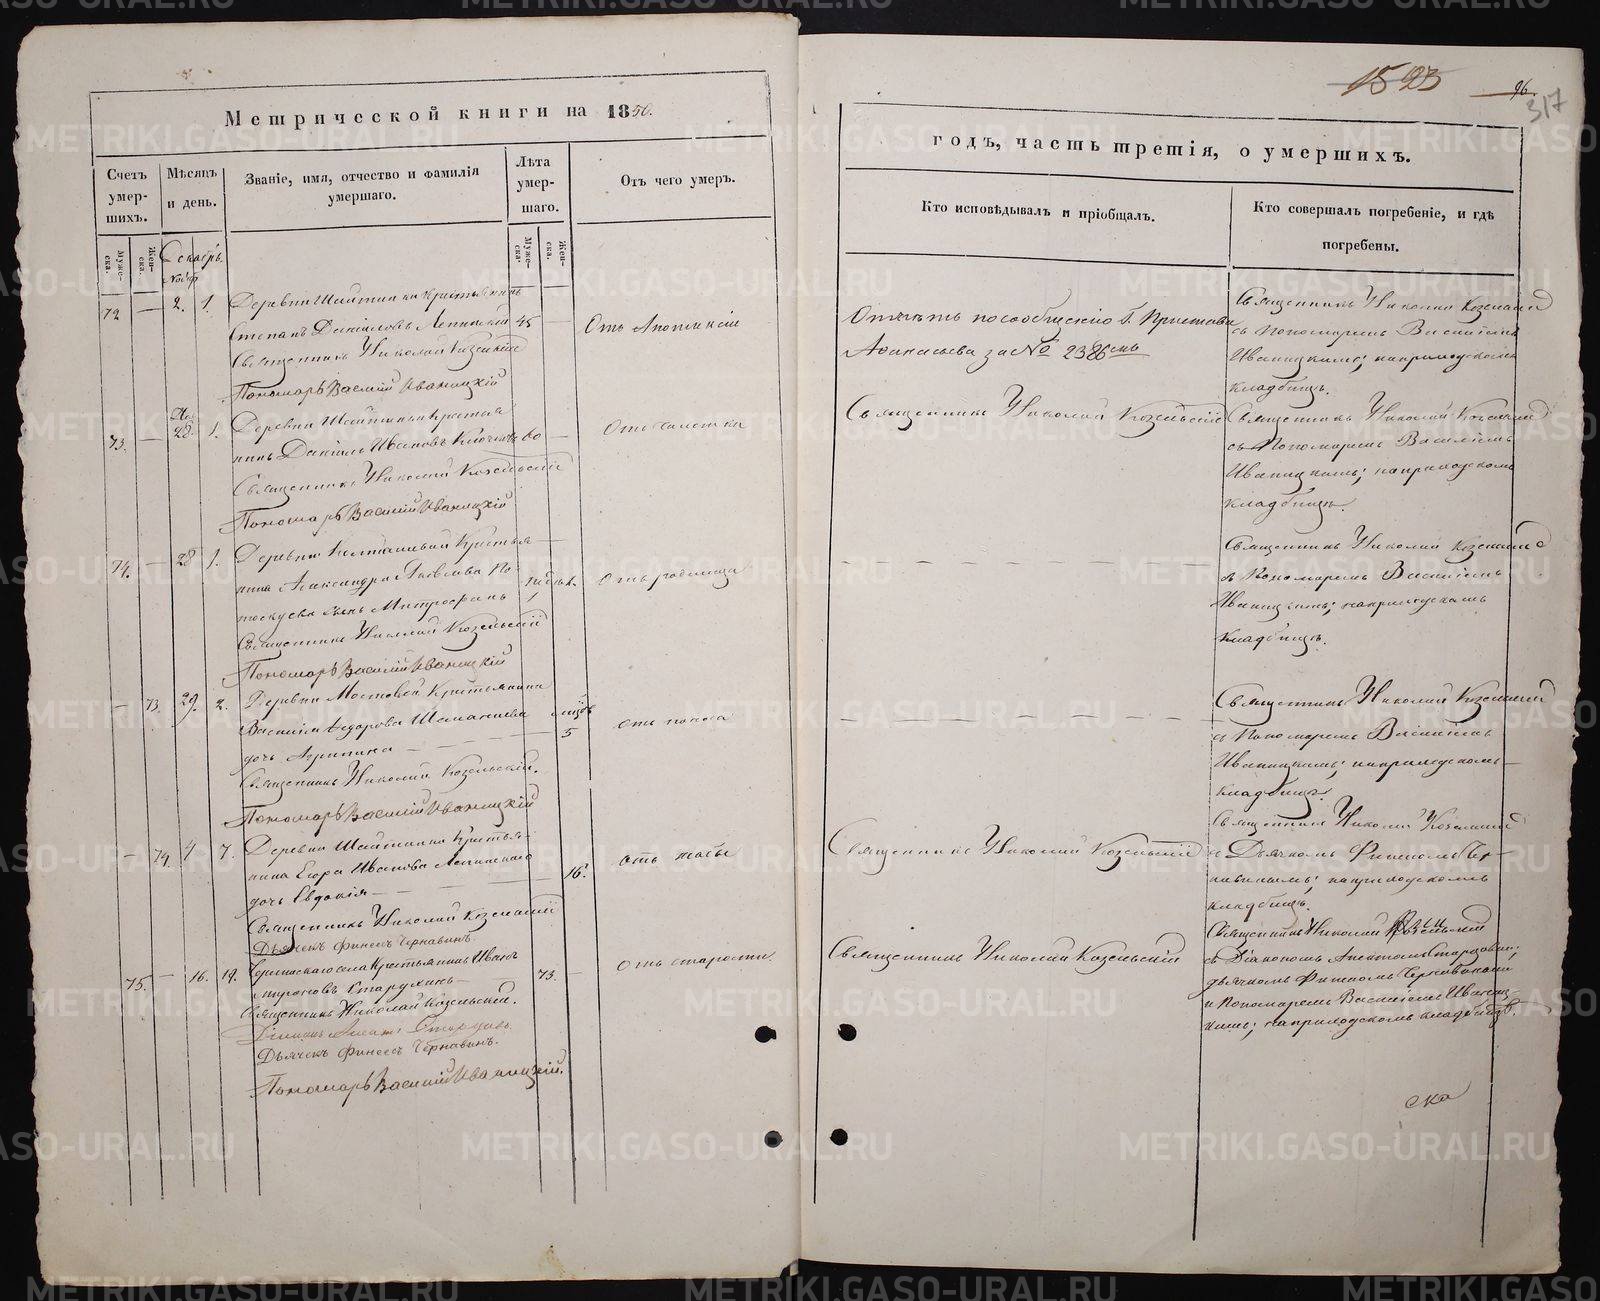 Метрической книги на 1850.
Счетъ умершихъ.
Мѣсяцъ и день.
Званіе, имя, отчество и фамилія умершаго.
Лѣта умершаго.
Отъ чего умеръ.
Муже-ска.
Жен-ска.
Декабрь.
Ноябр
Муже-ска.
Жен-ска.
72 — 2. 1. Деревни Шайтанки Крестьянинъ
Степанъ Даніиловъ 45 —
Священникъ Николай Козельскій
Пономарь Василій Иваницкій
73. — 28. 1. Деревни Шайтанки Крестья
нинъ Даніилъ Ивановъ 60 —
Священникъ Николай Козельскій
Пономарь Василій Иваницкій
74. — 28 1. Деревни Крестья—
нина Александра Яковлева По-
сынъ Митрофанъ
Отъ родимца
Священникъ Николай Козельскій
Пономарь Василій Иваницкій
— 73. 29. 2. Деревни Мостовой Крестьянина
Василія Ѳедорова
дочь Агрипина 5
отъ поноса
Священникъ Николай Козельскій.
Пономарь Василій Иваницкій
— 74. 4 7. Деревни Шайтанки Крестья-
нина Егора Иванова
дочь Евдокія — 16.
отъ жабы
Священникъ Николай Козельскій
Дьячекъ Финеесъ Чернавинъ.
75. — 16. 19. села Крестьянинъ Иванъ
73. —
отъ старости.
Священникъ Николай Козельскій.
Дьячекъ Финеесъ Чернавинъ.
Пономарь Василій Иваницкій.
1523
96.
317
годъ, часть третія, о умершихъ.
Кто исповѣдывалъ и пріобщалъ.
Кто совершалъ погребеніе, и гдѣ погребены.
за № 2386
Священникъ Николай Козельскій
съ Пономаремъ Василіемъ
Иваницкимъ; на приходскомъ
кладбищѣ.
Священникъ Николай Козельскій
Священникъ Николай Козельскій
съ Пономаремъ Василіемъ
Иваницкимъ; на приходскомъ
кладбищѣ.
Священникъ Николай Козельскій
съ Пономаремъ Василіемъ
Иваницкимъ; на приходскомъ
кладбищѣ.
Священникъ Николай Козельскій
съ Пономаремъ Василіемъ
Иваницкимъ; на приходскомъ
кладбищѣ.
Священникъ Николай Козельскій
Священникъ Николай Козельскій
съ Дьячкомъ Финеесомъ Чер—
навинымъ; на приходскомъ
кладбищѣ.
Священникъ Николай Козельскій
Священникъ Николай Козельскій
съ Діакономъ
дьячкомъ Финеесомъ Чернавинымъ
и Пономаремъ Василіемъ Иваниц-
кимъ; на приходскомъ кладбищѣ.
ска
METRIKI.GASO-URAL.RU